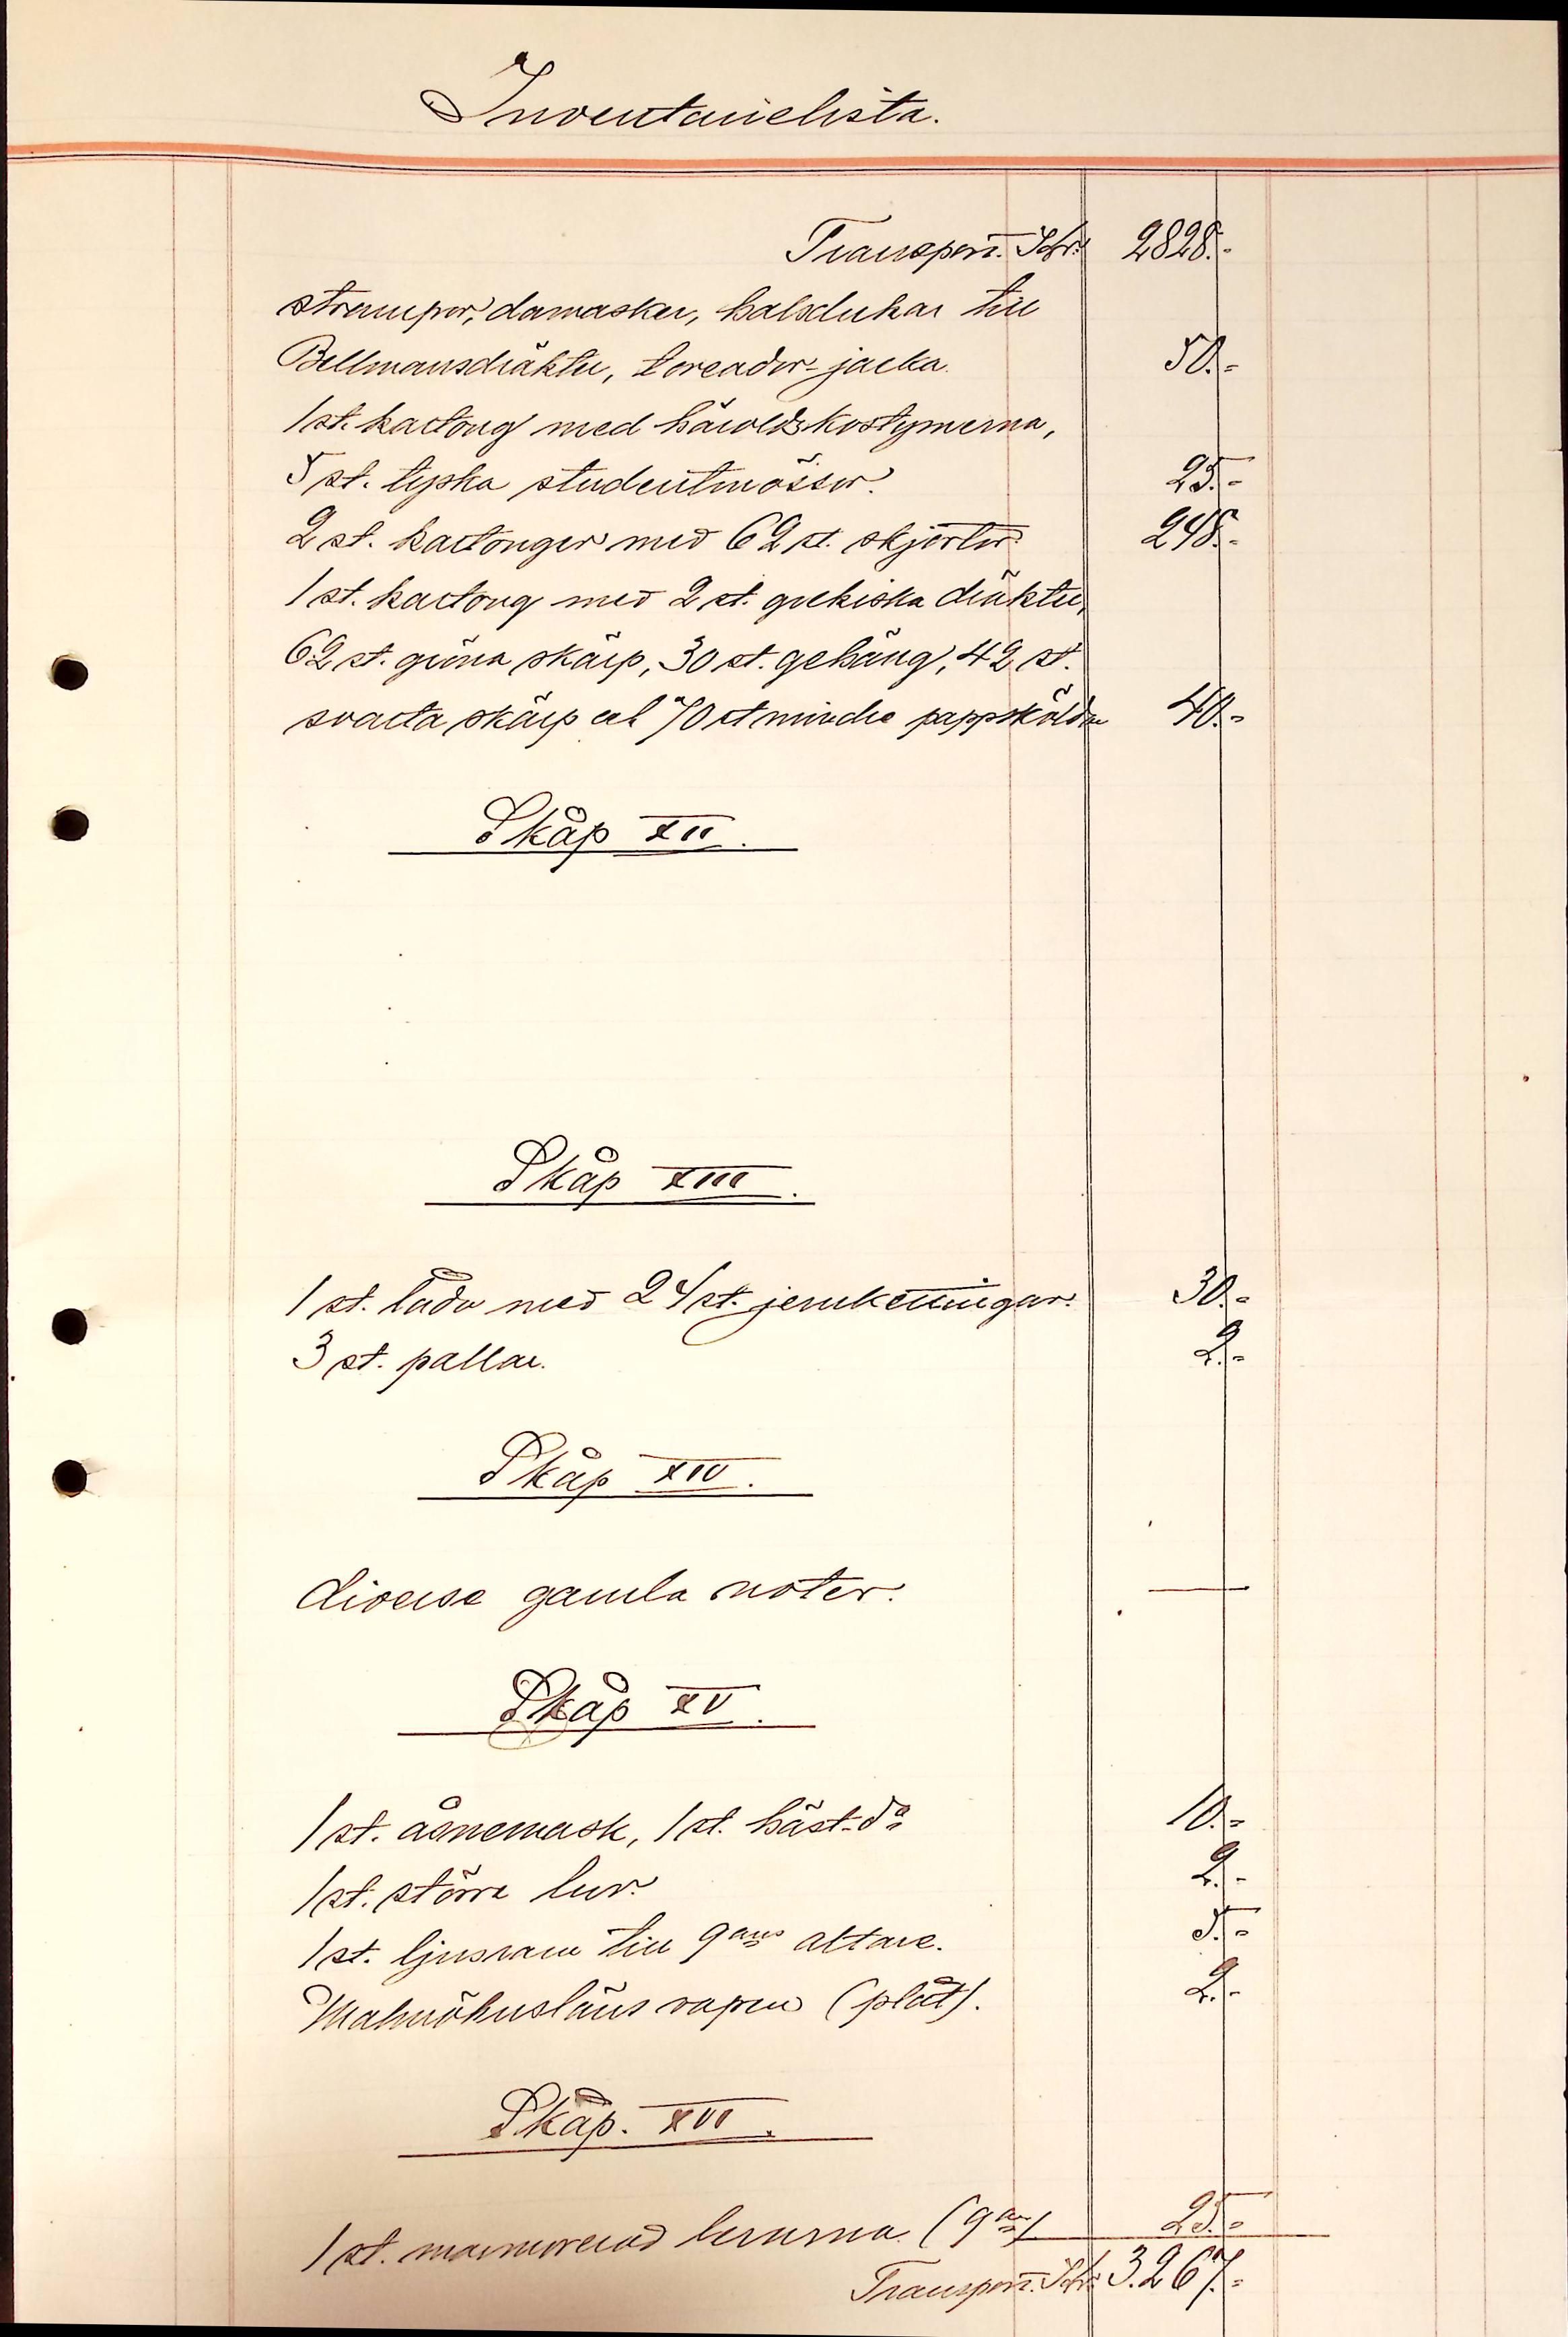 Inventarielista.
Transport. Kr. 2828.-
strumpor, damasker, halsdukar till
Bellmansdräkter, toreador-jacka. 50.-
1 st. kartong med häroldskostymerna,
5 st. tyska studentmössor. 25.-
2 st. kartonger med 62 st. skjortor. 248.-
1 st. kartong med 2 st. grekiska dräkter,
62 st. gröna skärp, 30 st. gehäng, 42 st.
svarta skärp och 70 st mindre pappsköldar 40.-
Skåp XII.
Skåp XIII.
1 st. låda med 24 st. jernkettingar. 30.-
3 st. pallar. 2.-
Skåp XIV.
diverse gamla noter. —
Skåp XV.
1 st. åsnemask, 1 st. häst-do 10.-
1 st. större lur. 2.-
1 st. ljusram till 9ans altare. 5.-
Malmöhusläns vapen (plåt). 2.-
Skåp. XVI.
1 st. marmorerad herma (9an) 25.-
Transport. Kr. 3.267.-